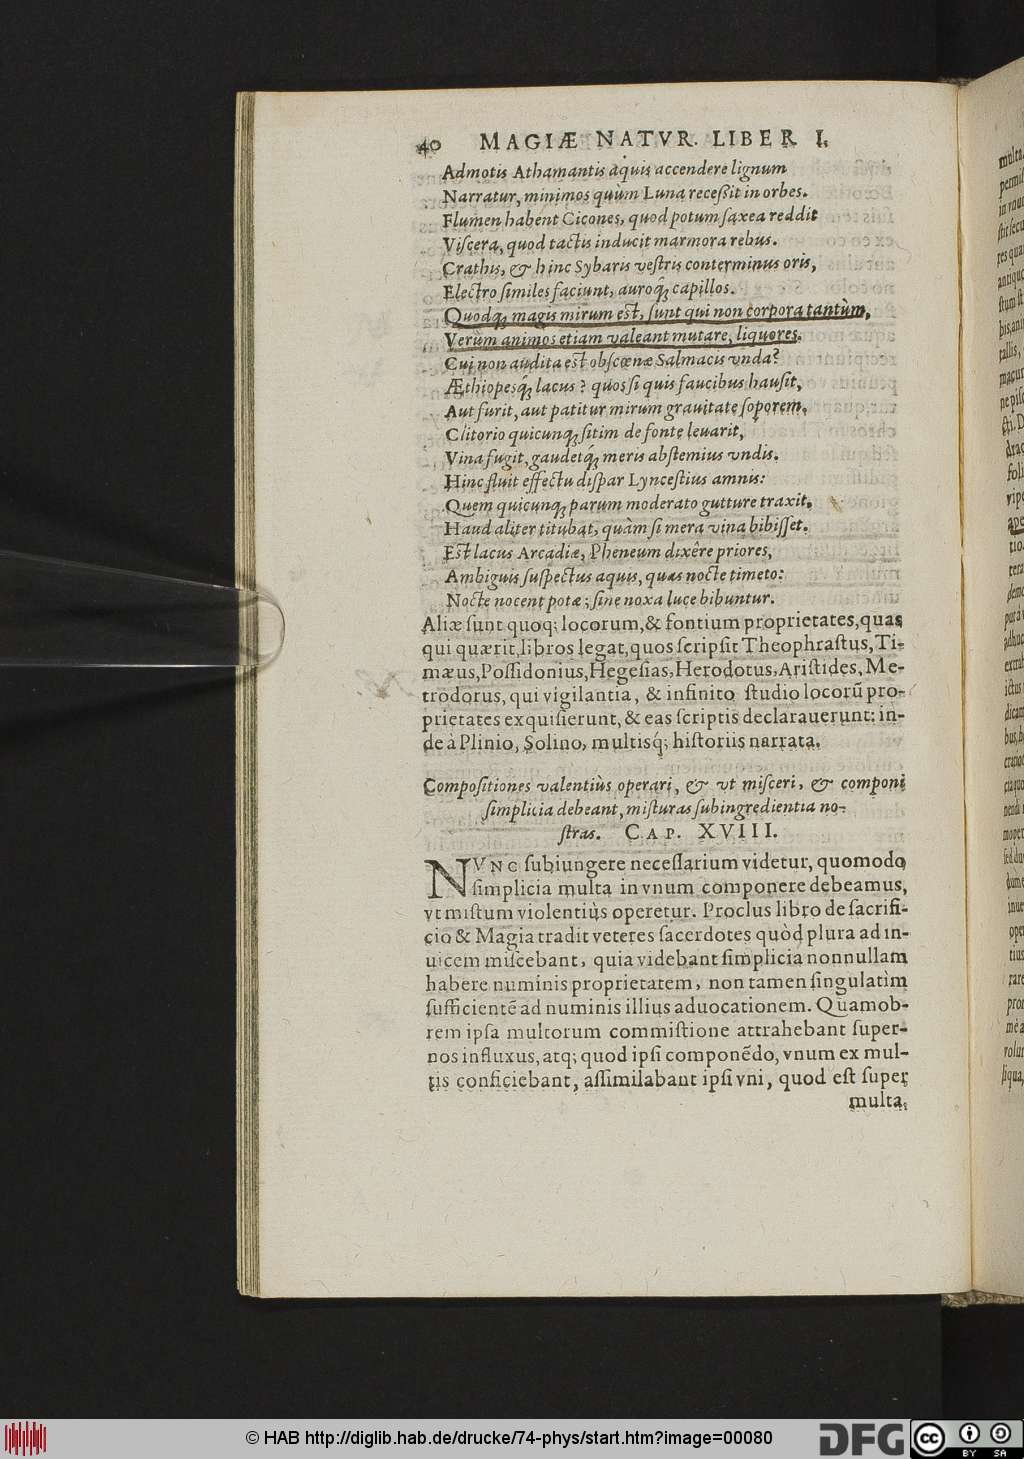 40 MAGIÆ NATVR. LIBER I.
Admotis Athamantis aquis accendere lignum
Narratur, minimos quùm Luna receßit in orbes.
Flumen habent Cicones, quod potum ſaxea reddit
Viſcera, quod tactis inducit marmora rebus.
Crathis, & hinc Sybaris veſtris conterminus oris,
Electro ſimiles faciunt, auroq́; capillos.
Quodq; magis mirum eſt, ſunt qui non corpora tantùm,
Verùm animos etiam valeant mutare, liquores.
Cui non audita eſt obſcœnæ Salmacis vnda?
Æthiopesq́; lacus? quos ſi quis faucibus hauſit,
Aut furit, aut patitur mirum grauitate ſoporem.
Clitorio quicunq; ſitim de fonte leuarit,
Vina fugit, gaudetq́; meris abſtemius vndis.
Hinc fluit effectu diſpar Lynceſtius amnis:
Quem quicunq; parum moderato gutture traxit,
Haud aliter titubat, quàm ſi mera vina bibiſſet.
Eſt lacus Arcadiæ, Pheneum dixêre priores,
Ambiguis ſuſpectus aquis, quas nocte timeto:
Nocte nocent potæ; ſine noxa luce bibuntur.
Aliæ ſunt quoq; locorum, & fontium proprietates, quas
qui quærit, libros legat, quos ſcripſit Theophraſtus, Ti-
mæus, Poſſidonius, Hegeſias, Herodotus, Ariſtides, Me-
trodorus, qui vigilantia, & infinito ſtudio locorũ pro-
prietates exquiſierunt, & eas ſcriptis declarauerunt: in-
de à Plinio, Solino, multisq́; hiſtoriis narrata.
Compoſitiones valentiùs operari, & vt miſceri, & componi
ſimplicia debeant, miſturas ſubingredientia no-
ſtras. CAP. XVIII.
NVNC ſubiungere neceſſarium videtur, quomodo
ſimplicia multa in vnum componere debeamus,
vt miſtum violentiùs operetur. Proclus libro de ſacrifi-
cio & Magia tradit veteres ſacerdotes quòd plura ad in-
uicem miſcebant, quia videbant ſimplicia nonnullam
habere numinis proprietatem, non tamen ſingulatìm
ſufficientẽ ad numinis illius aduocationem. Quamob-
rem ipſa multorum commiſtione attrahebant ſuper-
nos influxus, atq; quod ipſi componẽdo, vnum ex mul-
tis conficiebant, aſſimilabant ipſi vni, quod eſt ſuper
multa,
© HAB http://diglib.hab.de/drucke/74-phys/start.htm?image=00080
DFG
cc BY SA